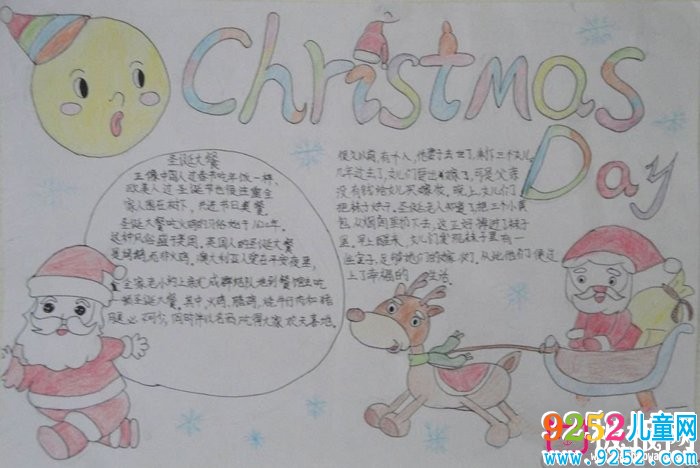 Christmas
Day
圣诞大餐
正像中国人过春节吃年饭一样
欧美人过圣诞节也很注重全
家人围在树下,共进节日美餐
圣诞大餐吃火鸡的习俗始于1620年
这种风俗盛于美国,英国人的圣诞大餐
是烤鹅,而非火鸡,澳大利亚人爱在平安夜里,
全家老小约上亲友成群结队地到餐馆去吃
顿圣诞大餐,其中,火鸡,腊鸡,烧牛仔肉和猪
腿是必不可少,同时伴以名酒,吃得大家欢天喜地.
很久以前,有个人,他妻子去世了,剩下三个女儿
几年过去了,女儿们要出嫁了,可是父亲
没有钱给女儿买嫁妆,晚上,女儿们
把袜子
圣诞老人知道了把三个小黄
包从烟囱里扔下去,这正好掉进了袜子
里,早上醒来,女儿们发现袜子里有一
些金子,足够她们的嫁妆了.从此他们便过
上了幸福的生活.
9252儿童网
www.9252.com